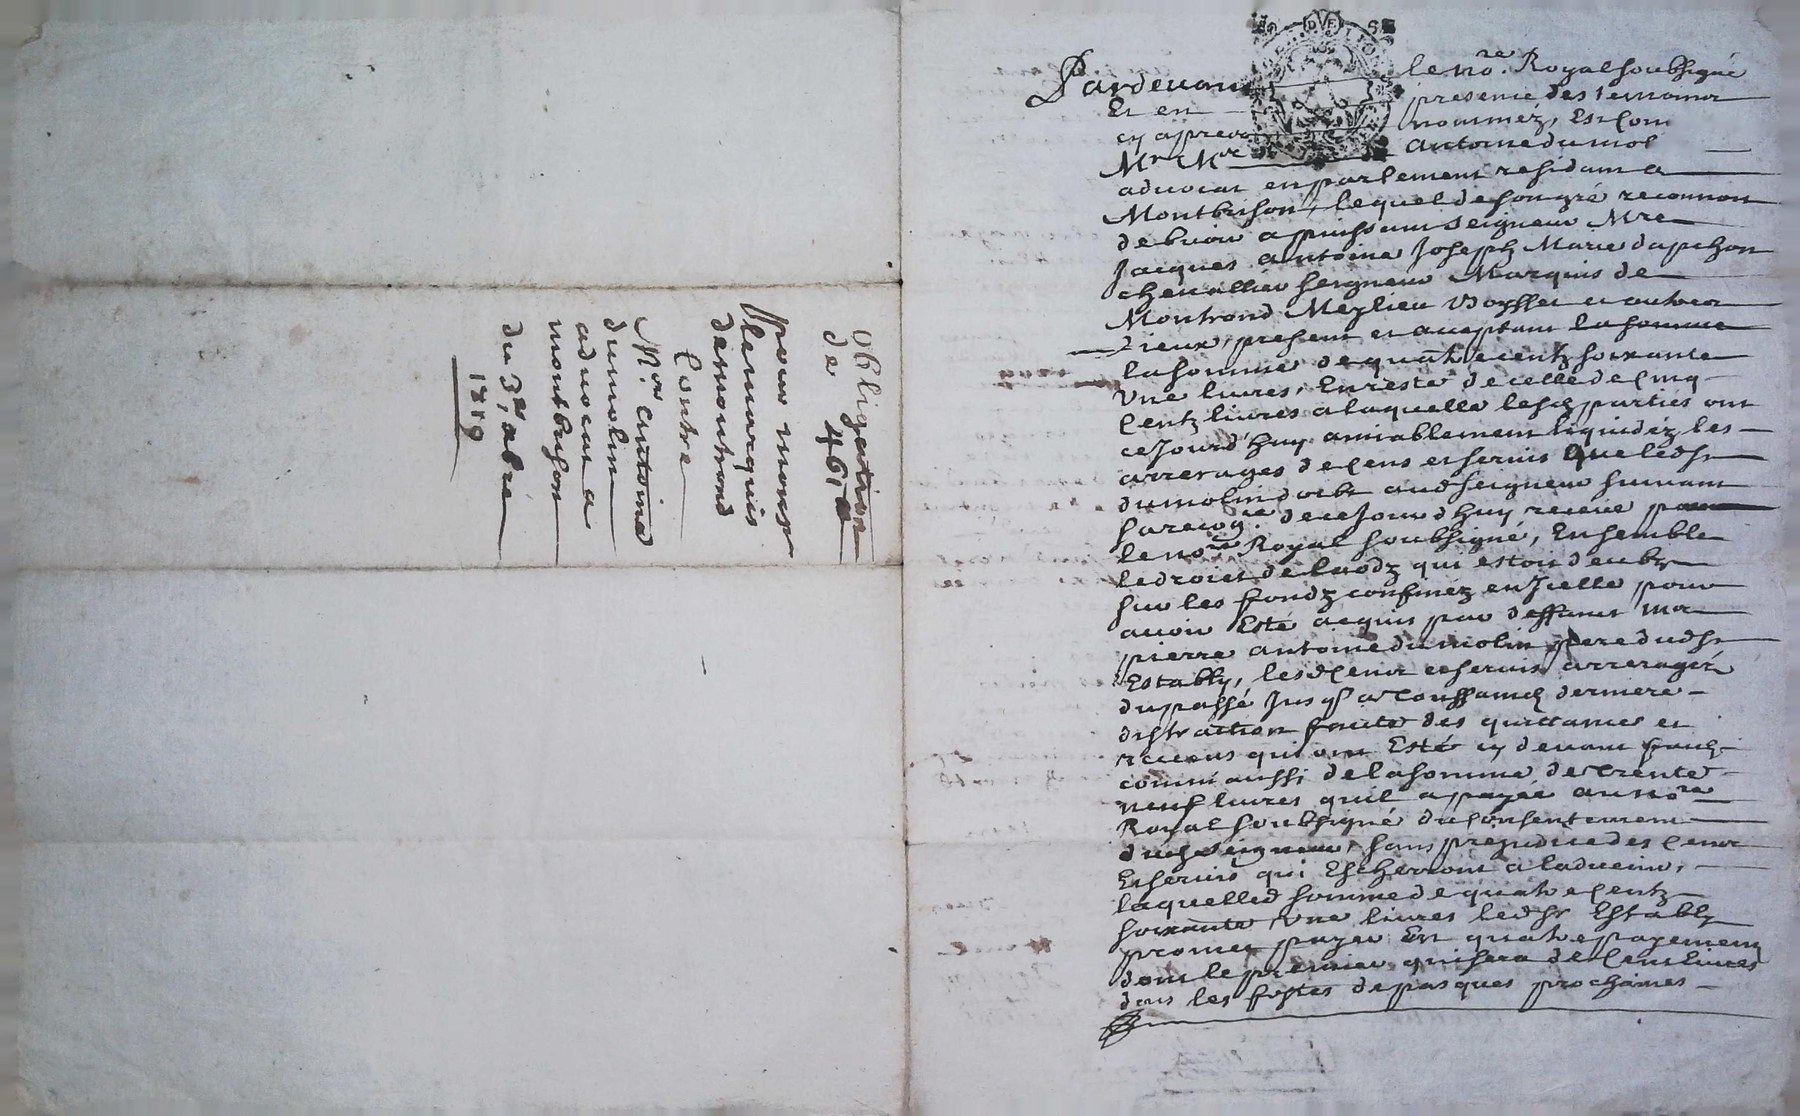 Obligation
de 461 #
pour monsr
le marquis
de montrond
Contre
Mre. antoine
dumolin
advocat a
montbrison
du 3e. abre
1719
Pardevant le nore. Royal soubsigné
Et en presence des temoins
cy apres nommez, Est Com
Mr Mre antoine dumol
advocat en parlement residant a
Montbrison, lequel de son gré reconnoit
debvoir a puissant seigneur Mre
Jacques antoine Joseph Marie dapchon
chevallier seigneur Marquis de
Montrond Meylieu et autres
Lieux, present et acceptant la somme
la somme de quatre centz soixante
Une livres, En reste de celle de Cinq
Centz livres a laquelle lesd parties ont
ce Jourd'huy amiablement liquidez les
arrerages de Cens et servis que led Sr
dumolin doibt aud seigneur suivant
sa recog.re de ce Jourd'huy receüe par
le nore Royal soubsigné, Ensemble
le droict de laodz qui estoit deubz
sur les fondz confinez en Jcelle pour
avoir Esté acquis par deffunct Mre
pierre antoine dumolin pere dud Sr
Estably, lesd Cens et servis arreragés
du passé Jusqs a Toussainct derniere
distraction faite des quittances et
receus qui ont Esté cy devant
comm'aussi de la somme de Trente
neuf livres qu'il a payée au nore
Royal soubsigné du Consentement
dud seigneur, sans prejudice des Cens
Et servis qui Escherront a ladvenir,
laquelled somme de quatre Centz
soixante Une livres led Sr Estably
promet payer En quatre payements
dont le premier qui sera de Cent livres
dans les festes de pasques prochaines